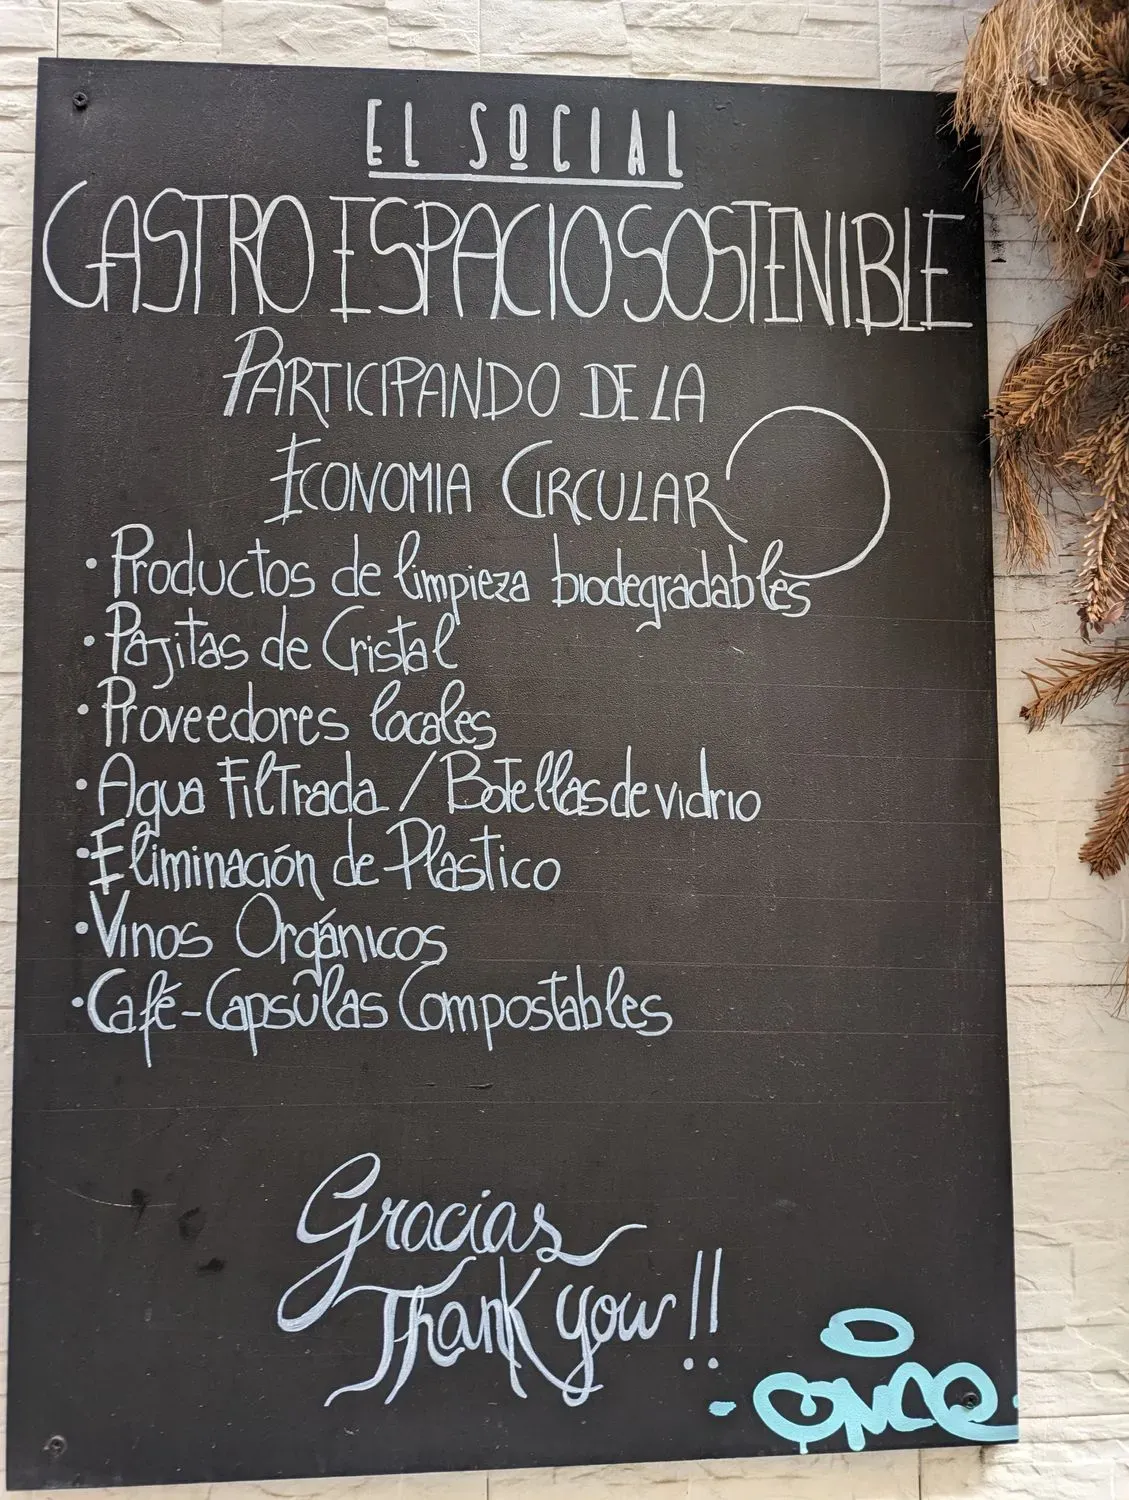 EL SOCIAL
GASTRO ESPACIO SOSTENIBLE
PARTICIPANDO DE LA
ECONOMIA CIRCULAR
· Productos de limpieza biodegradables
· Pajitas de Cristal
· Proveedores locales
· Agua Filtrada / Botellas de vidrio
· Eliminación de Plastico
· Vinos Orgánicos
· Café-Capsúlas Compostables
Gracias
Thank you!!